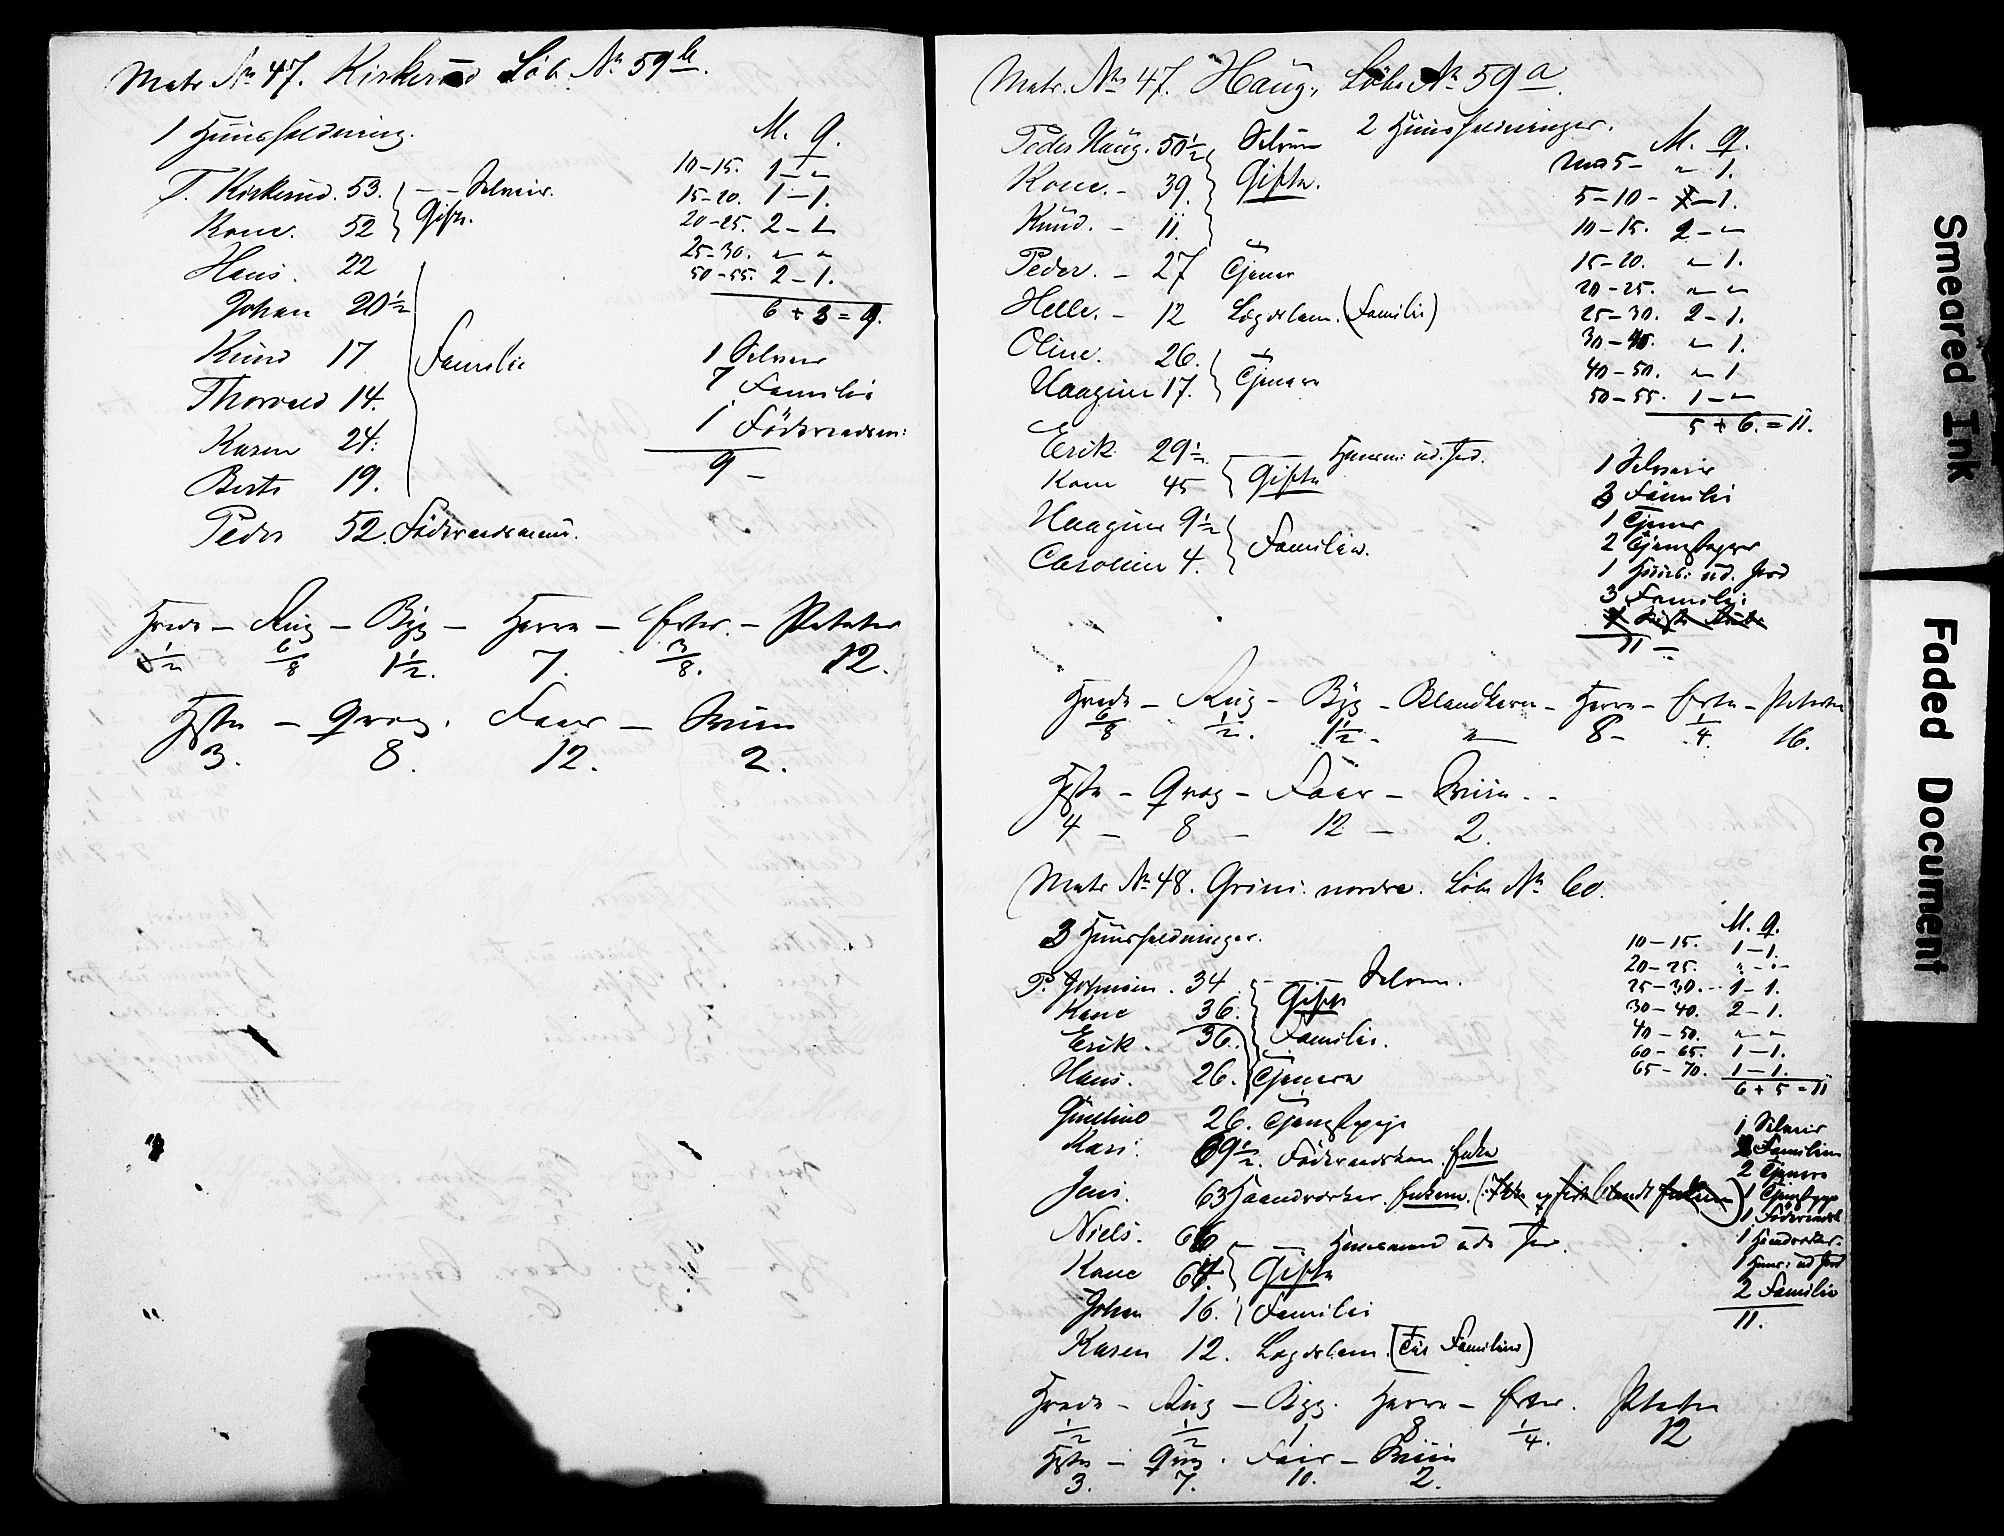 Matr № 47. Kirkerud Löb. № 59 b.
1 Huusholdning.
M. Q.
10-15. 1 - "
15-20. 1 - 1.
20-25. 2 - 1
25-30. " "
50-55. 2 - 1.
6 + 3 = 9.
T. Kirkerud. 53. - - Selveier.
Kone. 52 Gift.
Hans. 22
Johan 20½
Knud 17 Familie
Thorvald 14.
Karen 24.
Berte 19.
Peder 52. Föderaadsmand.
1 Selveier
7 Familie
1 Föderaadsm:
9 -
Hvede - Rug - Byg - Havre - Erter. - Poteter
½ 6/8 1½. 7. 3/8. 12.
Heste - Qvæg. Faar - Sviin
3. 8. 12. 2.
Matr. № 47. Haug, Löbe № 59 a.
2 Huusholdninger.
M. Q.
5 - " 1.
5-10 - 1.
10-15. 2 - "
15-20. " 1.
20-25. " "
25-30. 2 - 1.
30-40. " 1.
40-50. " 1
50-55. 1 - "
5 + 6. = 11.
Peder Haug. 50½ Selveier
Kone. - 39. Gifte.
Knud. - 11.
Peder. - 27 Tjener
Helle. - 12 Lægdslem. (Familie)
Oline. 26.
Haagine 17. Tjenere
Erik 29½. Huusm: ud. Jord.
Kone 45 Gifte
Haagine 9½
Caroline 4. Familien.
1 Selveier
3 Familie
1 Tjener
2 Tjenestepiger
1 Huusm: ud. Jord
3 Familie
11 -
Hvede - Rug - Byg - Blandkorn - Havre - Erter - Poteter
6/8 ½. 1½ - " 8 - ¼. 16.
Heste - Qvæg - Faar - Sviin. -
4 - 8 - 12 - 2.
Matr № 48. Grini nordre. Löbe № 60.
3 Huusholdninger.
M. Q.
10-15. 1-1.
20-25. " - "
25-30. 1-1.
30-40. 2-1.
40-50. " "
60-65. 1-1.
65-70. 1-1.
6 + 5 = 11
P. Johnsen. 34 - - Selveier.
Kone 36. Gifte
Erik. 36. Familie.
Hans. 26. Tjenere
Gulline 26. Tjenestepige
Kari. 69½. Föderaadskone. Enke
Jens. 63 Haandværker. Enkem.
Niels. 66 - - Huusmand uden Jord.
Kone 64. Gifte
Johan 16. Familie
Karen 12. Lægdslem. (Familien)
1 Selveier
Familien
2 Tjenere
1 Tjenestepige
1 Föderaadsk
1 Haandværker.
1 Huusm: ud Jord
2 Familie
11.
Hvede - Rug - Byg. Havre - Erter. Poteter
½ ½ 1 8 ¼. 12
Heste - Qvæg. Faar - Sviin
3. 7. 10. 2.
Smeared Ink
Faded Document